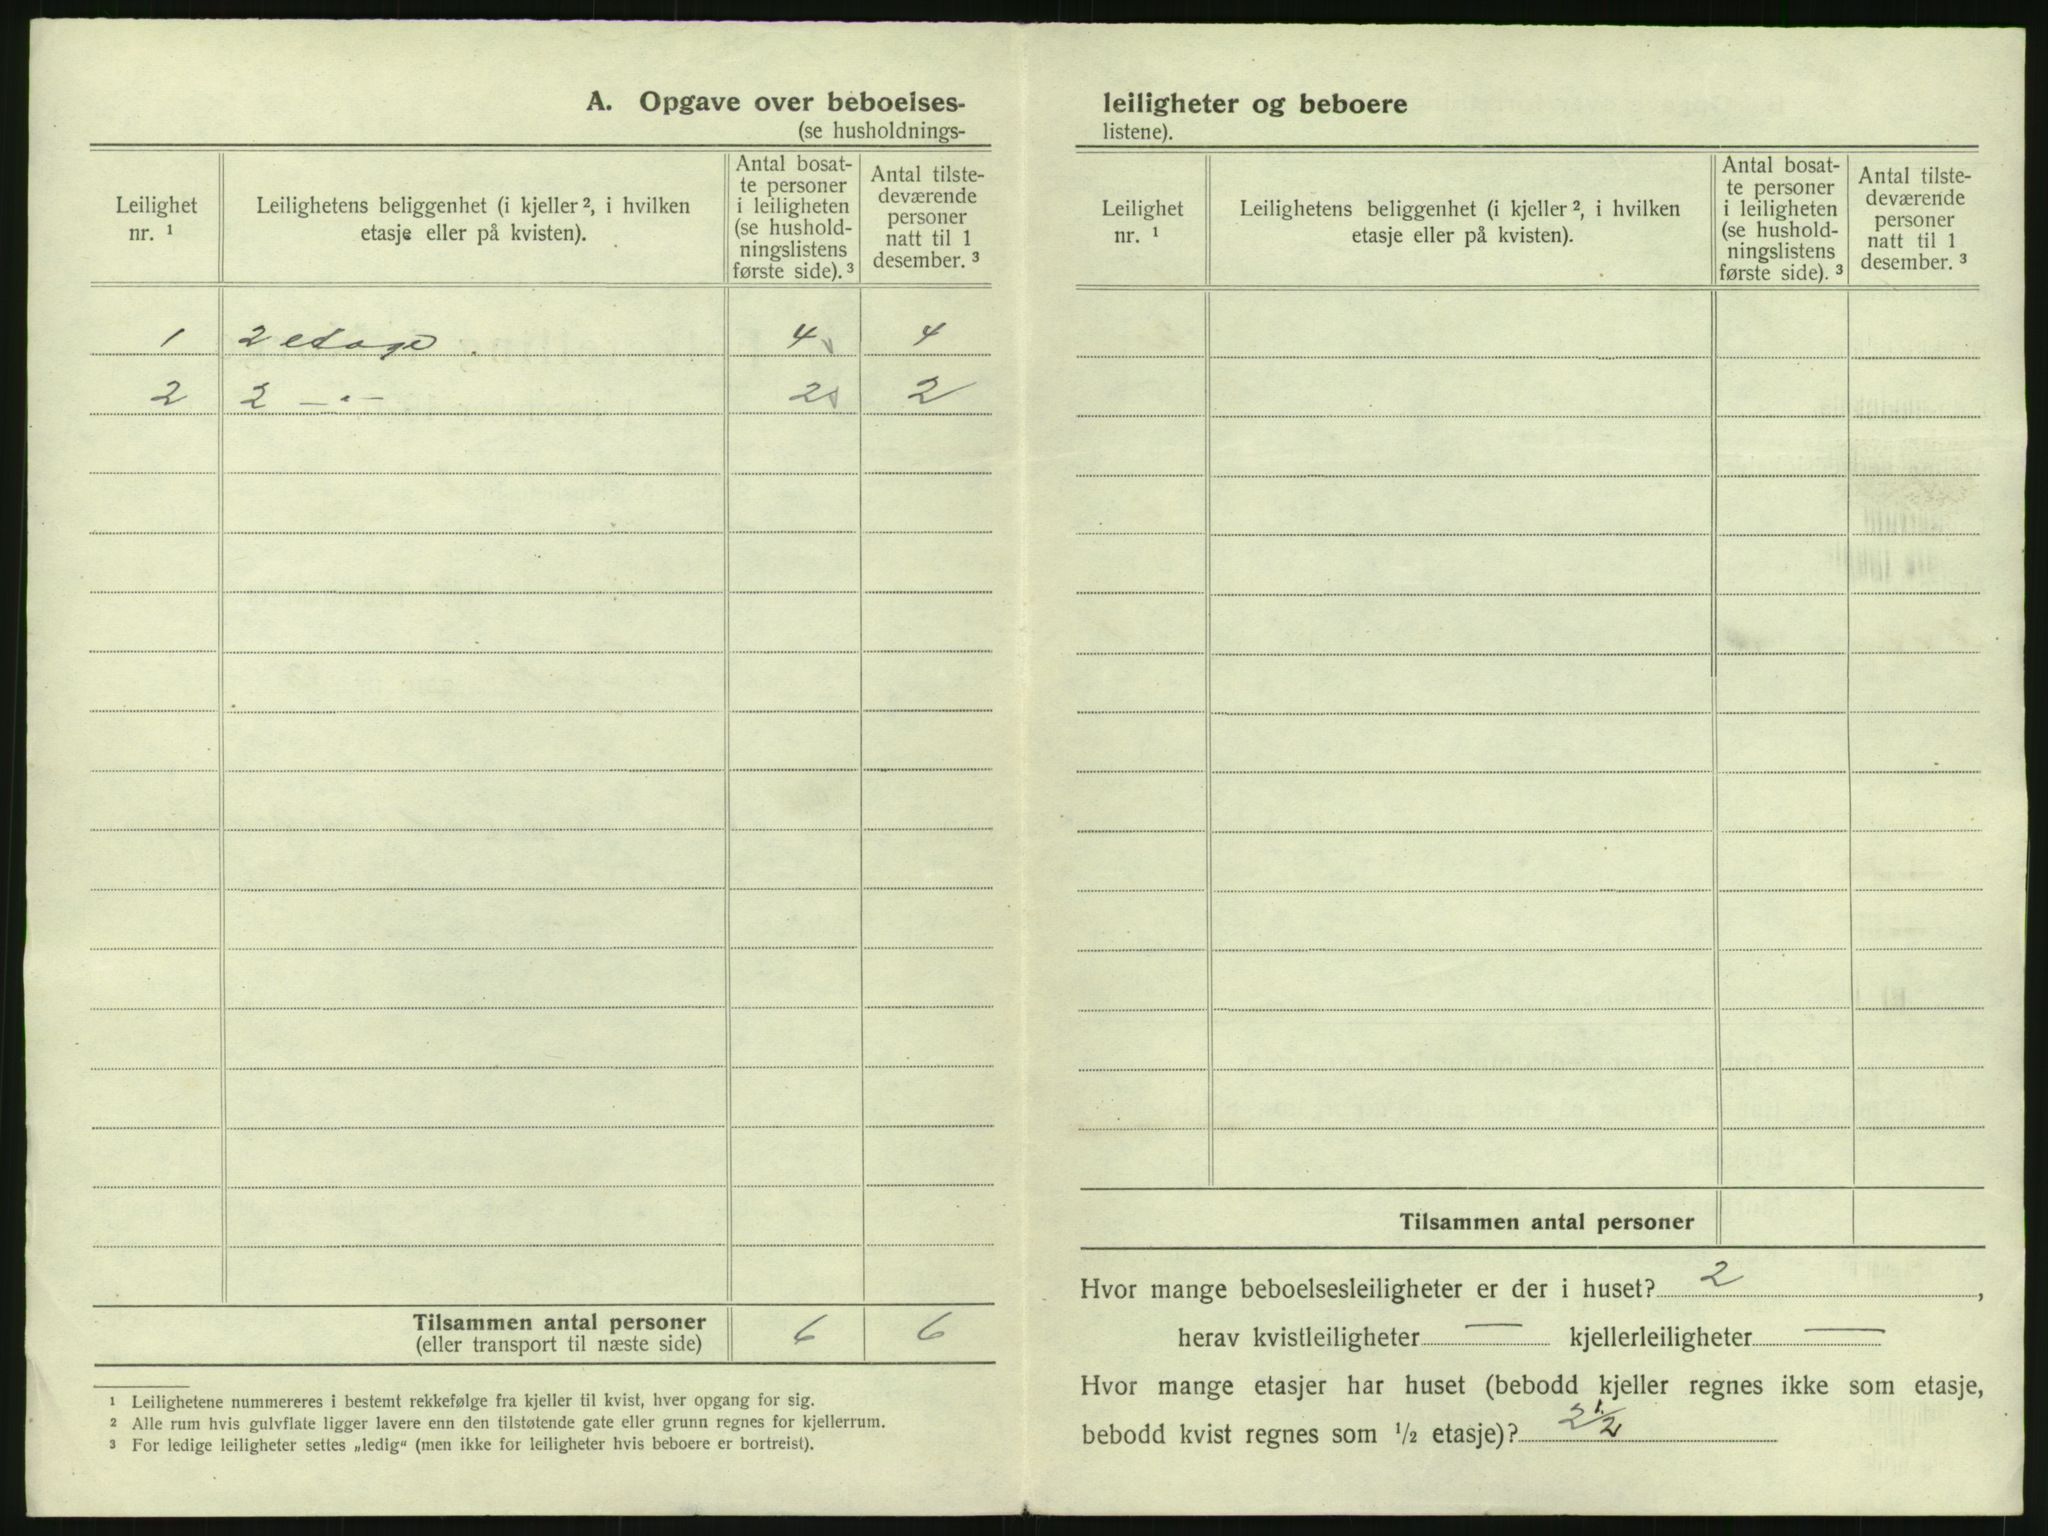 A. Opgave over beboelses-
(se husholdnings-
Leilighet
nr. ¹
Leilighetens beliggenhet (i kjeller ², i hvilken
etasje eller på kvisten).
Antal bosat-
te personer
i leiligheten
(se hushold-
ningslistens
første side). ³
Antal tilste-
deværende
personer
natt til 1
desember. ³
1 2 etage 4 4
2 2 —"— 2 2
Tilsammen antal personer 6 6
(eller transport til næste side)
¹ Leilighetene nummereres i bestemt rekkefølge fra kjeller til kvist, hver opgang for sig.
² Alle rum hvis gulvflate ligger lavere enn den tilstøtende gate eller grunn regnes for kjellerrum.
³ For ledige leiligheter settes „ledig“ (men ikke for leiligheter hvis beboere er bortreist).
leiligheter og beboere
listene).
Leilighet
nr. ¹
Leilighetens beliggenhet (i kjeller ², i hvilken
etasje eller på kvisten).
Antal bosat-
te personer
i leiligheten
(se hushold-
ningslistens
første side). ³
Antal tilste-
deværende
personer
natt til 1
desember. ³
Tilsammen antal personer
Hvor mange beboelsesleiligheter er der i huset? 2,
herav kvistleiligheter — kjellerleiligheter —
Hvor mange etasjer har huset (bebodd kjeller regnes ikke som etasje,
bebodd kvist regnes som ½ etasje)? 2½